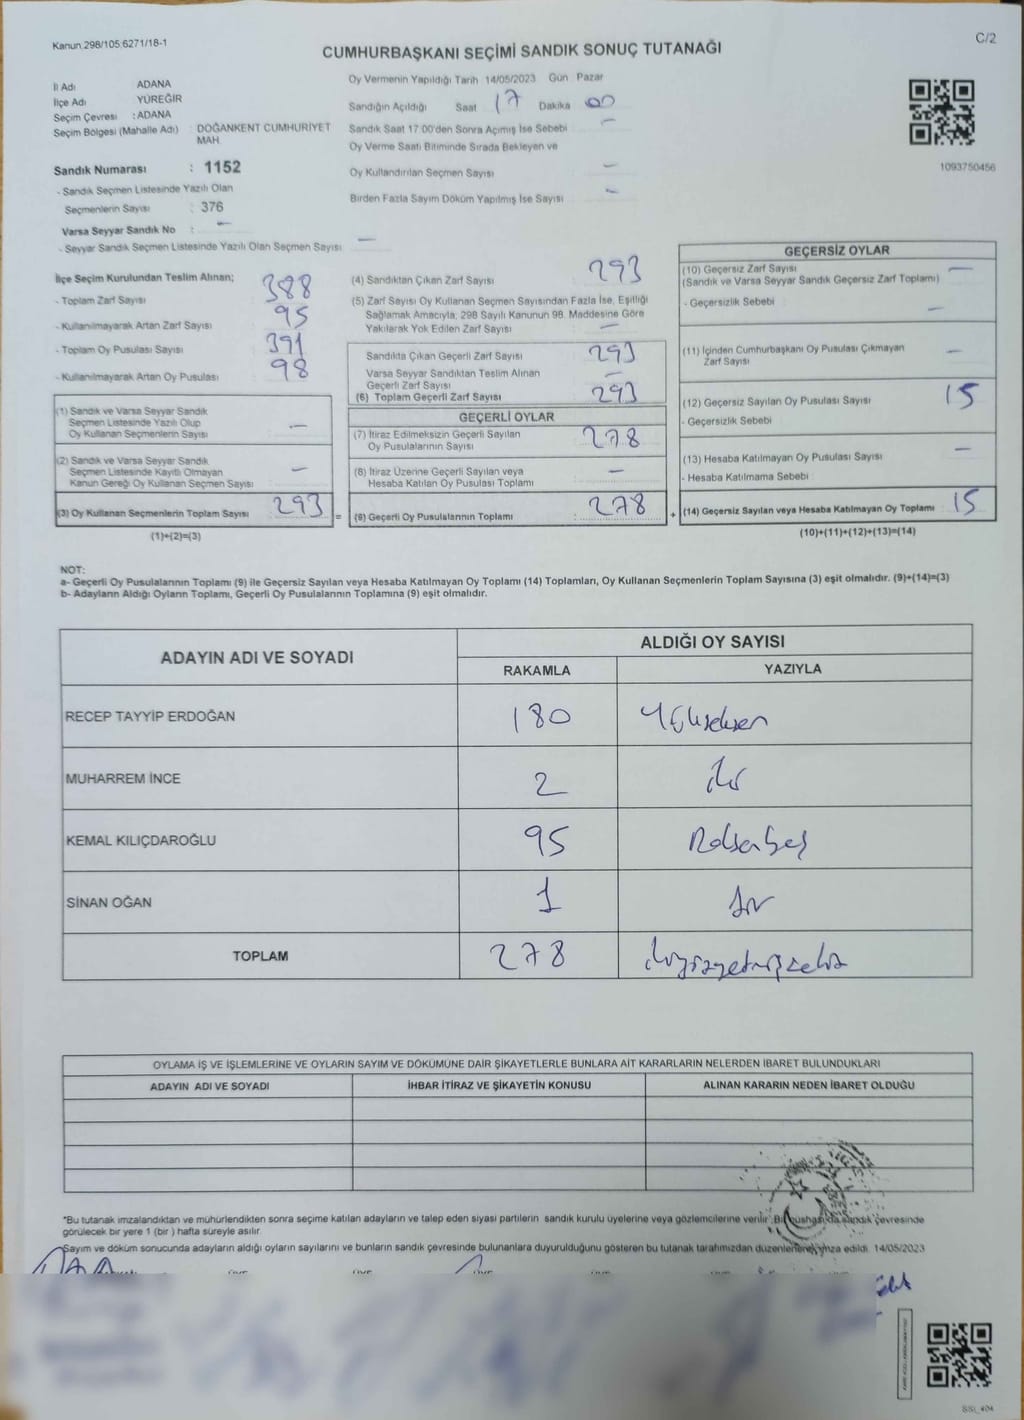 Kanun.298/105,6271/18-1
C/2
CUMHURBAŞKANI SEÇİMİ SANDIK SONUÇ TUTANAĞI
İl Adı ADANA
İlçe Adı YÜREĞİR
Seçim Çevresi : ADANA
Seçim Bölgesi (Mahalle Adı) : DOĞANKENT CUMHURİYET
MAH.
Sandık Numarası : 1152
- Sandık Seçmen Listesinde Yazılı Olan
Seçmenlerin Sayısı : 376
Varsa Seyyar Sandık No : -
- Seyyar Sandık Seçmen Listesinde Yazılı Olan Seçmen Sayısı : -
Oy Vermenin Yapıldığı Tarih 14/05/2023 Gün Pazar
Sandığın Açıldığı Saat 17 Dakika 00
Sandık Saat 17:00'den Sonra Açımış İse Sebebi -
Oy Verme Saati Bitiminde Sırada Bekleyen ve
Oy Kullandırılan Seçmen Sayısı -
Birden Fazla Sayım Döküm Yapılmış İse Sayısı -
1093750456
İlçe Seçim Kurulundan Teslim Alınan;
- Toplam Zarf Sayısı 388
- Kullanılmayarak Artan Zarf Sayısı 95
- Toplam Oy Pusulası Sayısı 391
- Kullanılmayarak Artan Oy Pusulası 98
(1) Sandık ve Varsa Seyyar Sandık
Seçmen Listesinde Yazılı Olup
Oy Kullanan Seçmenlerin Sayısı -
(2) Sandık ve Varsa Seyyar Sandık
Seçmen Listesinde Kayıtlı Olmayan
Kanun Gereği Oy Kullanan Seçmen Sayısı -
(3) Oy Kullanan Seçmenlerin Toplam Sayısı 293 =
(1)+(2)=(3)
(4) Sandıktan Çıkan Zarf Sayısı 293
(5) Zarf Sayısı Oy Kullanan Seçmen Sayısından Fazla İse, Eşitliği
Sağlamak Amacıyla; 298 Sayılı Kanunun 98. Maddesine Göre
Yakılarak Yok Edilen Zarf Sayısı -
Sandıkta Çıkan Geçerli Zarf Sayısı 293
Varsa Seyyar Sandıktan Teslim Alınan
Geçerli Zarf Sayısı -
(6) Toplam Geçerli Zarf Sayısı 293
GEÇERLİ OYLAR
(7) İtiraz Edilmeksizin Geçerli Sayılan
Oy Pusulalarının Sayısı 278
(8) İtiraz Üzerine Geçerli Sayılan veya
Hesaba Katılan Oy Pusulası Toplamı -
(9) Geçerli Oy Pusulalarının Toplamı : 278 +
GEÇERSİZ OYLAR
(10) Geçersiz Zarf Sayısı -
(Sandık ve Varsa Seyyar Sandık Geçersiz Zarf Toplamı)
- Geçersizlik Sebebi : -
(11) İçinden Cumhurbaşkanı Oy Pusulası Çıkmayan
Zarf Sayısı -
(12) Geçersiz Sayılan Oy Pusulası Sayısı 15
- Geçersizlik Sebebi
(13) Hesaba Katılmayan Oy Pusulası Sayısı -
- Hesaba Katılmama Sebebi
(14) Geçersiz Sayılan veya Hesaba Katılmayan Oy Toplamı 15
(10)+(11)+(12)+(13)=(14)
NOT:
a- Geçerli Oy Pusulalarının Toplamı (9) ile Geçersiz Sayılan veya Hesaba Katılmayan Oy Toplamı (14) Toplamları, Oy Kullanan Seçmenlerin Toplam Sayısına (3) eşit olmalıdır. (9)+(14)=(3)
b- Adayların Aldığı Oyların Toplamı, Geçerli Oy Pusulalarının Toplamına (9) eşit olmalıdır.
ADAYIN ADI VE SOYADI
ALDIĞI OY SAYISI
RAKAMLA YAZIYLA
RECEP TAYYİP ERDOĞAN 180 Yüzseksen
MUHARREM İNCE 2 iki
KEMAL KILIÇDAROĞLU 95 Doksanbeş
SİNAN OĞAN 1 bir
TOPLAM 278 ikiyüzyetmişsekiz
OYLAMA İŞ VE İŞLEMLERİNE VE OYLARIN SAYIM VE DÖKÜMÜNE DAİR ŞİKAYETLERLE BUNLARA AİT KARARLARIN NELERDEN İBARET BULUNDUKLARI
ADAYIN ADI VE SOYADI İHBAR İTİRAZ VE ŞİKAYETİN KONUSU ALINAN KARARIN NEDEN İBARET OLDUĞU
*Bu tutanak imzalandıktan ve mühürlendikten sonra seçime katılan adayların ve talep eden siyasi partilerin sandık kurulu üyelerine veya gözlemcilerine verilir. Bir nushası da sandık çevresinde
görülecek bir yere 1 (bir ) hafta süreyle asılır.
Sayım ve döküm sonucunda adayların aldığı oyların sayılarını ve bunların sandık çevresinde bulunanlara duyurulduğunu gösteren bu tutanak tarafımızdan düzenlenerek imza edildi. 14/05/2023